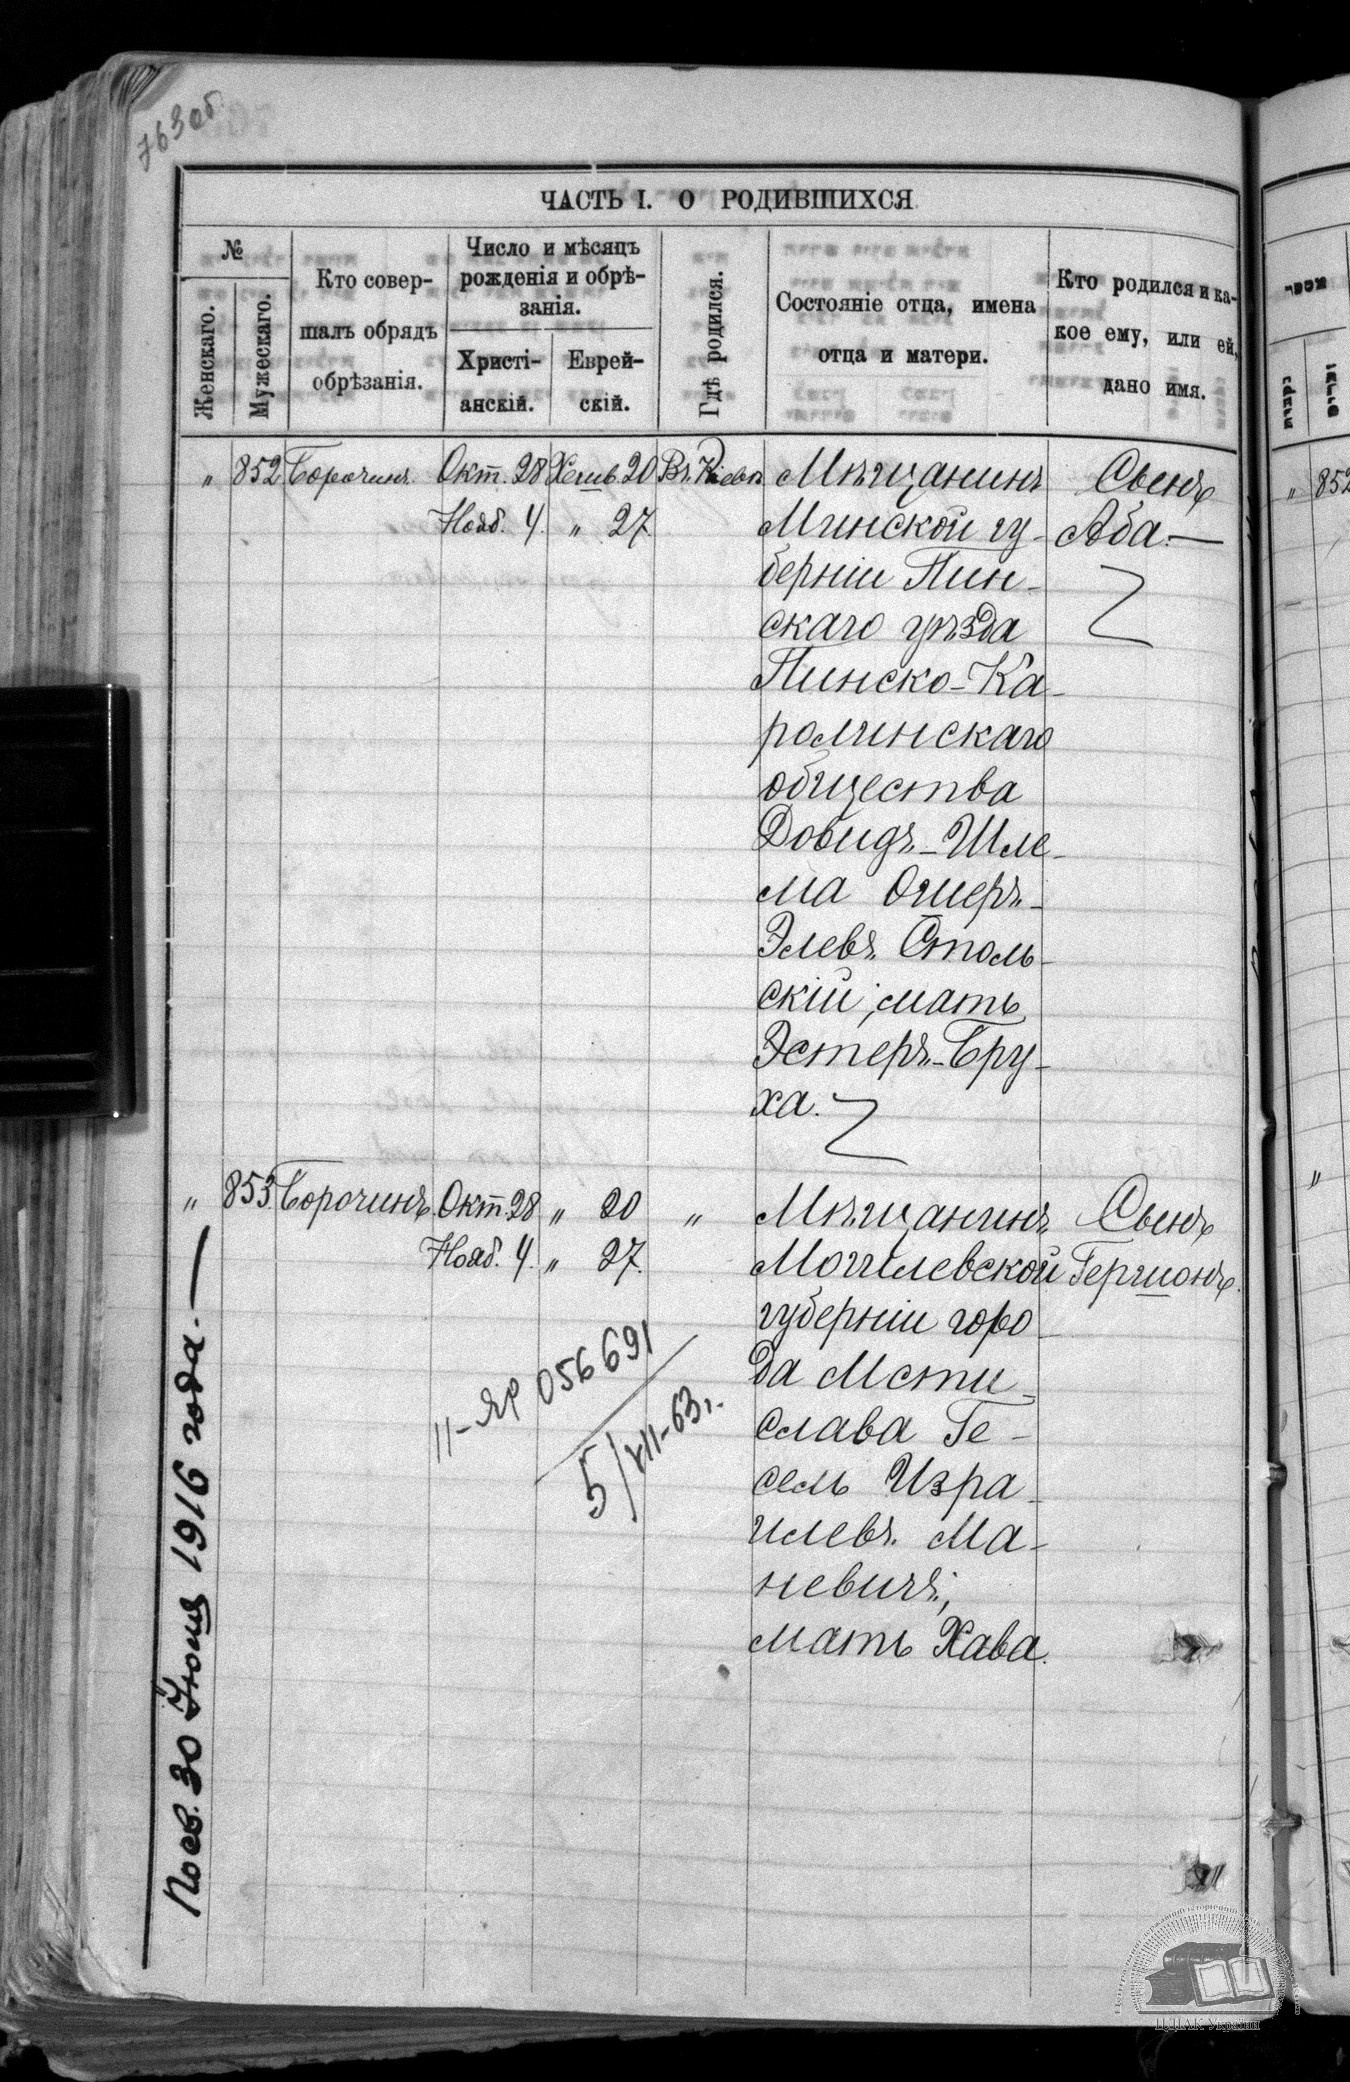 763 об.
ЧАСТЬ I. О РОДИВШИХСЯ
№
Женскаго.
Мужескаго.
Кто совер-
шалъ обрядъ
обрѣзанія.
Число и мѣсяцъ
рожденія и обрѣ-
занія.
Христі-
анскій.
Еврей-
скій.
Гдѣ родился.
Состояніе отца, имена
отца и матери.
Кто родился и ка-
кое ему, или ей,
дано имя.
„ 852 Борочинъ Окт. 28 Хешв. 20 Въ Кіевѣ Мѣщанинъ Сынъ
Нояб. 4. „ 27. Минской гу- Аба.—
берніи Пин-
скаго уѣзда
Пинско-Ка-
ролинскаго
общества
Довидъ-Шле-
ма Ошеръ-
Элевъ Столь-
скій, мать
Эстеръ-Бру-
ха.
„ 853. Борочинъ Окт. 28 „ 20 „ Мѣщанинъ Сынъ
Нояб. 4. „ 27. Могилевской Гершонъ.
губерніи горо-
да Мсти-
слава Ге-
сель Изра-
илевъ Ма-
невичъ,
мать Хава.
II-ЯР 056691
5/VII-63г.
Посв. 30 Іюня 1916 года.—
„ 852
„
ЦДІАК України